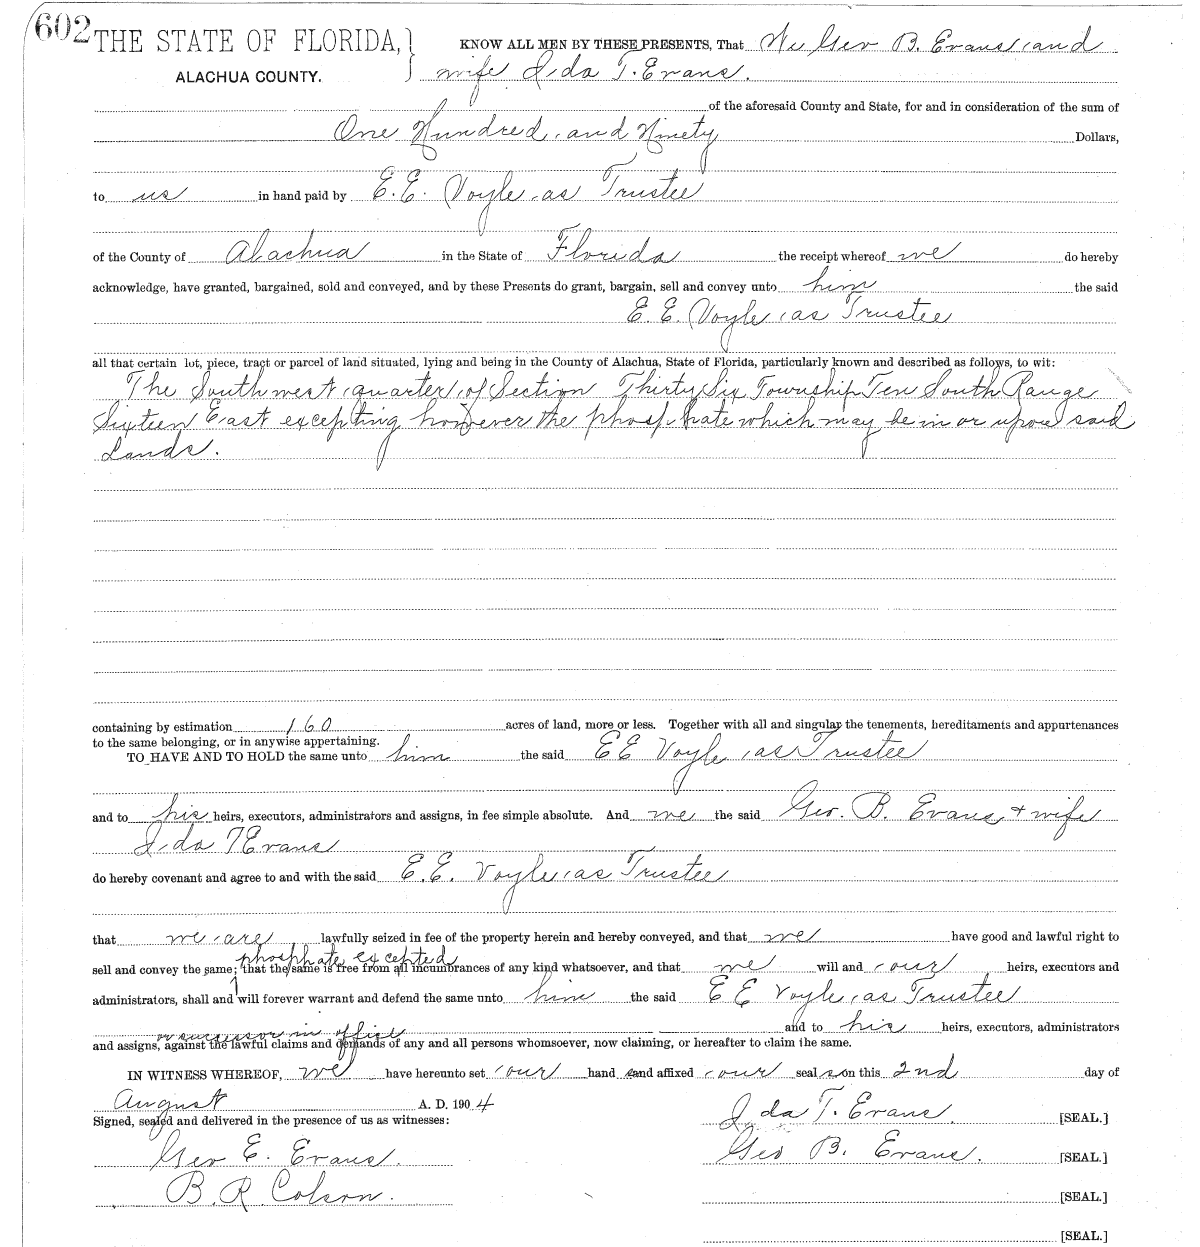 602
THE STATE OF FLORIDA, } KNOW ALL MEN BY THESE PRESENTS, That We Geo B. Evans and
ALACHUA COUNTY. wife Ida T. Evans.
of the aforesaid County and State, for and in consideration of the sum of
One Hundred and Ninety Dollars,
to us in hand paid by E.E. Voyle as Trustee
of the County of Alachua in the State of Florida the receipt whereof we do hereby
acknowledge, have granted, bargained, sold and conveyed, and by these Presents do grant, bargain, sell and convey unto him the said
E. E. Voyle as Trustee
all that certain lot, piece, tract or parcel of land situated, lying and being in the County of Alachua, State of Florida, particularly known and described as follows, to wit:
The Southwest quarter of Section Thirty Six Township Ten South Range
Sixteen East excepting however the phosphate which may be in or upon said
Lands.
containing by estimation 160 acres of land, more or less. Together with all and singular the tenements, hereditaments and appurtenances
to the same belonging, or in anywise appertaining.
TO HAVE AND TO HOLD the same unto him the said E E Voyle as Trustee
and to his heirs, executors, administrators and assigns, in fee simple absolute. And we the said Geo. B. Evans & wife
Ida T Evans
do hereby covenant and agree to and with the said E.E. Voyle as Trustee
that we are lawfully seized in fee of the property herein and hereby conveyed, and that we have good and lawful right to
phosphate excepted
sell and convey the same; that the same is free from all incumbrances of any kind whatsoever, and that we will and our heirs, executors and
administrators, shall and will forever warrant and defend the same unto him the said E E Voyle as Trustee
or successor in office and to his heirs, executors, administrators
and assigns, against the lawful claims and demands of any and all persons whomsoever, now claiming, or hereafter to claim the same.
IN WITNESS WHEREOF, we have hereunto set our hand s and affixed our seal s on this 2nd day of
August A. D. 1904
Signed, sealed and delivered in the presence of us as witnesses: Ida T. Evans [SEAL.]
Geo E. Evans. Geo B. Evans. [SEAL.]
B. R. Colson. [SEAL.]
[SEAL.]